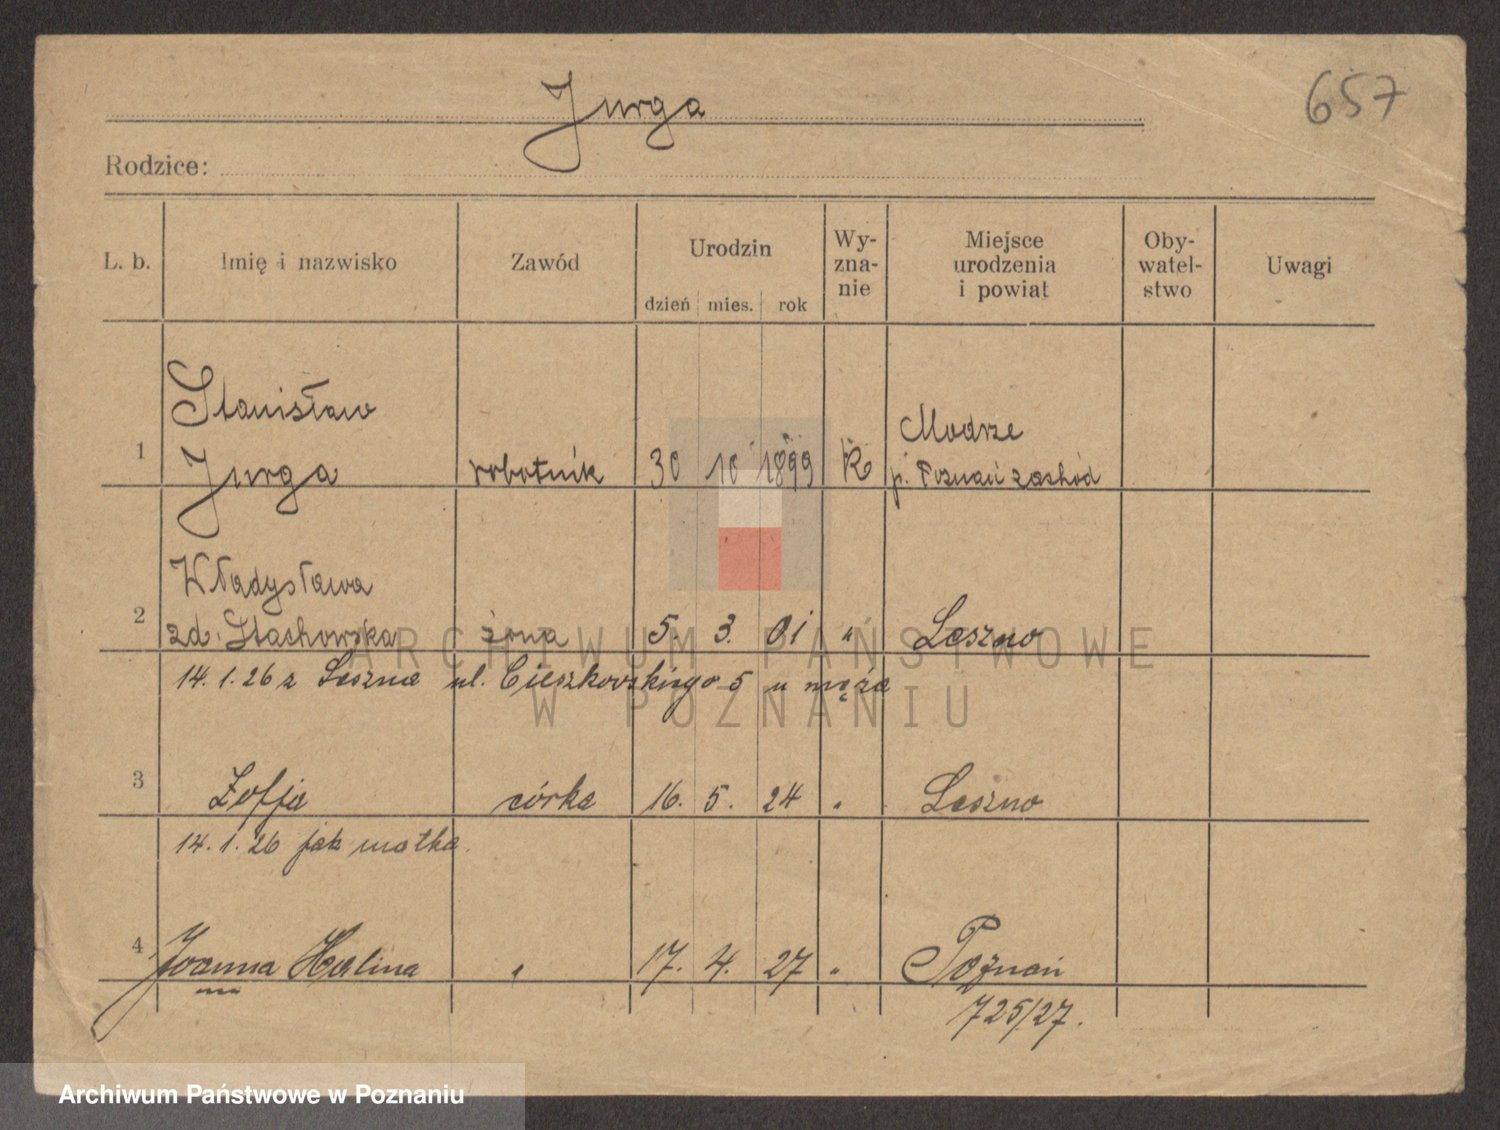 Jurga
657
Rodzice:
L. b. Imię i nazwisko Zawód Urodzin dzień mies. rok Wy-
zna-
nie Miejsce
urodzenia
i powiat Oby-
watel-
stwo Uwagi
Stanisław
1 Jurga robotnik 30 10 1899 R Modrze
p. Poznań zachód
Władysława
2 zd. Stachowska żona 5. 3. 01 " Leszno
14.1.26 z Leszna ul. Cieszkowskiego 5 u męża
3 Zofja córka 16. 5. 24 " Leszno
14.1.26 jak matka.
4 Joanna Halina " 17. 4. 27 " Poznań
725/27.
ARCHIWUM PAŃSTWOWE
W POZNANIU
Archiwum Państwowe w Poznaniu